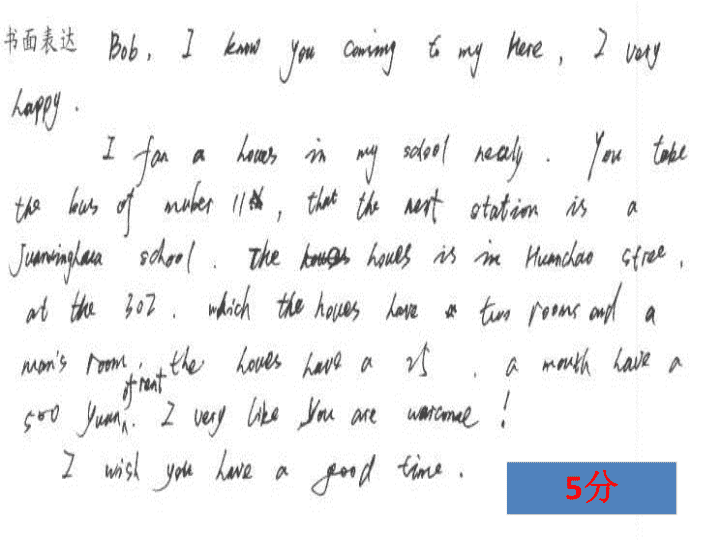 书面表达 Bob, I know you coming to my here, I very
happy.
I fan a houes in my school nearly. You take
the bus of muber 11, that the next station is a
school. The houes is in Huanchao stree,
at the 302. which the houes have two rooms and a
man's room. the houes have a 25. a mouth have a
500 yuan of rent. I very like you are warcomae!
I wish you have a good time.
5分